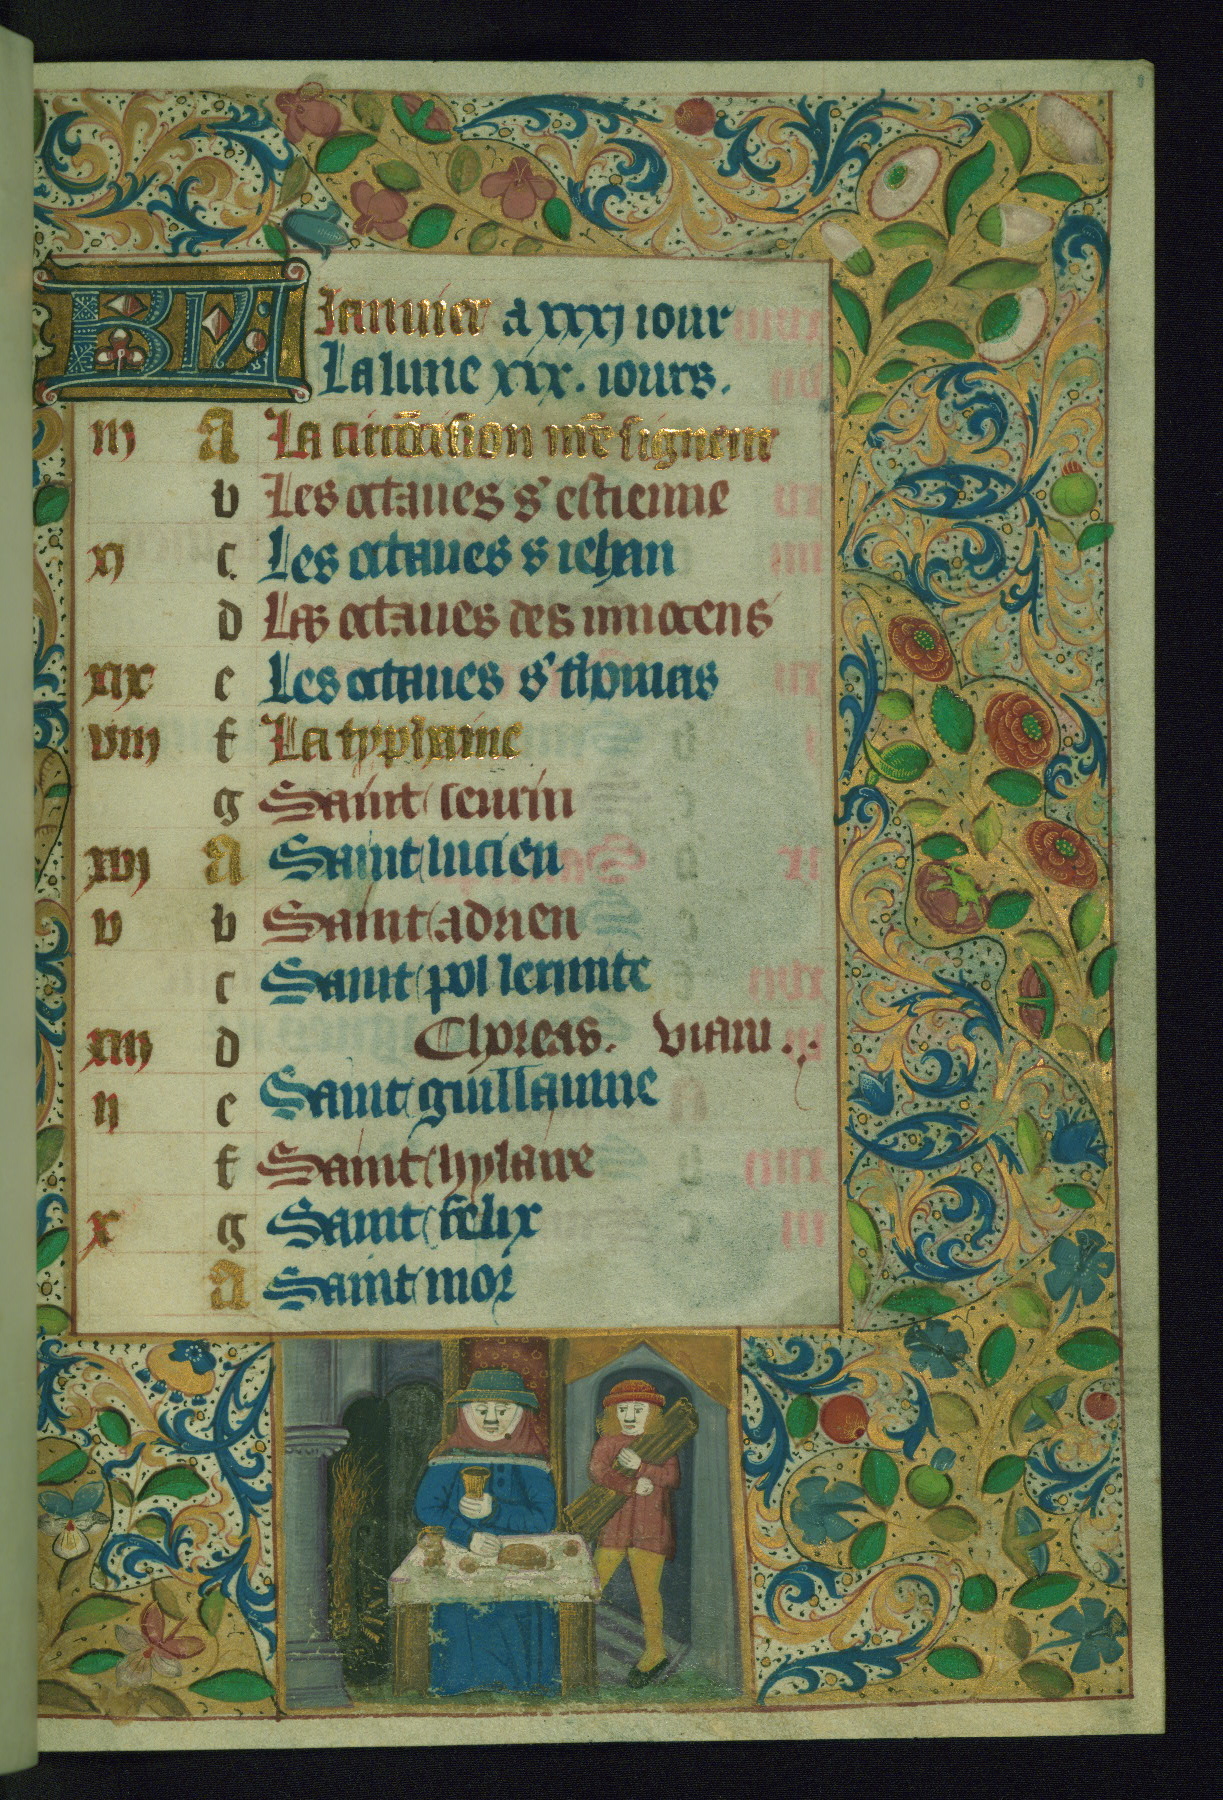 KL Januier a xxxj iour
La lune xxx. iours.
iij A La circōcision nr̄e signeur
b Les octaues s' estienne
xj c Les octaues s iehan
d Les octaues des innocens
xix e Les octaues s' thomas
viij f La typhaine
g Saint seurin
xvj A Saint lucien
v b Saint adrien
c Saint pol
xiij d Choreas. viam
ij e Saint guillaume
f Saint hylaire
x g Saint felix
A Saint mor